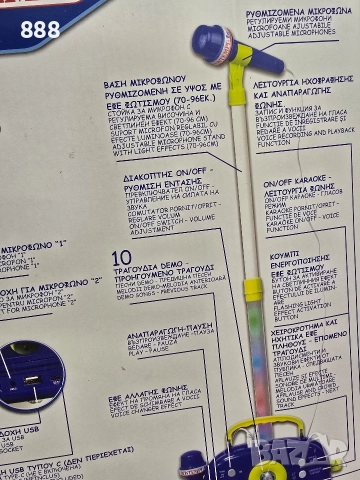 888
ΡΥΘΜΙΖΟΜΕΝΑ ΜΙΚΡΟΦΩΝΑ
РЕГУЛИРУЕМИ МИКРОФОНИ
MICROFOANE AJUSTABILE
ADJUSTABLE MICROPHONES
ΒΑΣΗ ΜΙΚΡΟΦΩΝΟΥ
ΡΥΘΜΙΖΟΜΕΝΗ ΣΕ ΥΨΟΣ ΜΕ
ΕΦΕ ΦΩΤΙΣΜΟΥ (70-96ΕΚ.)
СТОЙКА ЗА МИКРОФОН С
РЕГУЛИРУЕМА ВИСОЧИНА И
СВЕТЛИНЕН ЕФЕКТ (70-96 СМ)
SUPORT MICROFON REGLABIL CU
EFECTE LUMINOASE (70-96CM)
ADJUSTABLE MICROPHONE STAND
WITH LIGHT EFFECTS (70-96CM)
ΛΕΙΤΟΥΡΓΙΑ ΗΧΟΓΡΑΦΗΣΗΣ
ΚΑΙ ΑΝΑΠΑΡΑΓΩΓΗΣ
ΦΩΝΗΣ
ЗАПИС И ФУНКЦИЯ ЗА
ВЪЗПРОИЗВЕЖДАНЕ НА ГЛАС
FUNCTIE DE INREGISTRARE SI
REDARE A VOCII
VOICE RECORDING AND PLAYBACK
FUNCTION
ΔΙΑΚΟΠΤΗΣ ON/OFF -
ΡΥΘΜΙΣΗ ΕΝΤΑΣΗΣ
ПРЕВКЛЮЧВАТЕЛ ON/OFF -
УПРАВЛЕНИЕ НА СИЛАТА НА
ЗВУКА
COMUTATOR PORNIT/OPRIT -
REGLARE VOLUM
ON/OFF SWITCH - VOLUME
ADJUSTMENT
ON/OFF KARAOKE -
ΛΕΙΤΟΥΡΓΙΑ ΦΩΝΗΣ
ON/OFF KARAOKE - ГЛАСОВ
РЕЖИМ
KARAOKE PORNIT/OPRIT -
FUNCTIE DE VOCE
KARAOKE ON/OFF - VOICE
FUNCTION
ΜΙΚΡΟΦΩΝΟ "1"
"1"
"1"
"1"
ΟΧΗ ΓΙΑ ΜΙΚΡΟΦΩΝΟ "2"
ЗА МИКРОФОН "2"
MICROFON "2"
T FOR MICROPHONE "2"
10
ΤΡΑΓΟΥΔΙΑ DEMO -
ΠΡΟΗΓΟΥΜΕΝΟ ΤΡΑΓΟΥΔΙ
ПЕСНИ DEMO - ПРЕДИШНА ПЕСЕН
MELODII DEMO-MELODIA ANTERIOARA
DEMO SONGS - PREVIOUS TRACK
ΚΟΥΜΠΙ
ΕΝΕΡΓΟΠΟΙΗΣΗΣ
ΕΦΕ ΦΩΤΙΣΜΟΥ
БУТОН ЗА АКТИВИРАНЕ
BUTON DE ACTIVARE A
EFECTULUI DE ILUMIN-
ARE
FLASHING LIGHT
EFFECT ACTIVATION
BUTTON
ΑΝΑΠΑΡΑΓΩΓΗ-ΠΑΥΣΗ
REDARE - PAUZA
PLAY - PAUSE
ΧΕΙΡΟΚΡΟΤΗΜΑ ΚΑΙ
ΗΧΗΤΙΚΑ ΕΦΕ
ΠΛΗΘΟΥΣ - ΕΠΟΜΕΝΟ
ΤΡΑΓΟΥΔΙ
ΕΦΕ ΑΛΛΑΓΗΣ ΦΩΝΗΣ
ЕФЕКТ НА ПРОМЯНА НА ГЛАСА
EFECT DE SCHIMBARE A VOCII
VOICE CHANGER EFFECT
ΔΟΧΗ USB
ЗА USB
USB
SOCKET
ΧΗ USB ΤΥΠΟΥ C (ΔΕΝ ΠΕΡΙΕΧΕΤΑΙ)
BAZAR